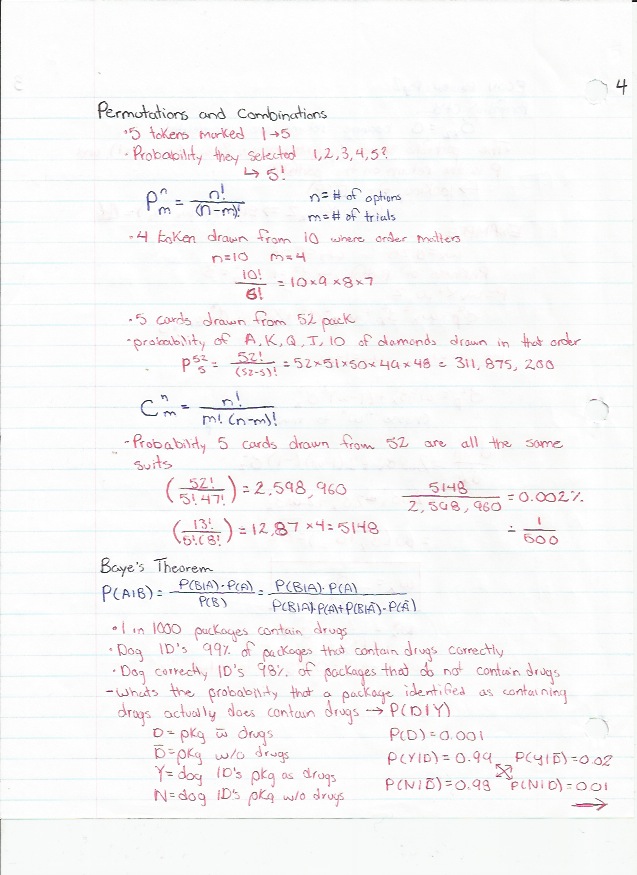 4
Permutations and Combinations
• 5 tokens marked 1→5
• Probability they selected 1,2,3,4,5?
↳ 5!
P^n_m = n!/(n-m)! n = # of options
m = # of trials
• 4 token drawn from 10 where order matters
n=10 m=4
10!/6! = 10×9×8×7
• 5 cards drawn from 52 pack
• probability of A, K, Q, J, 10 of diamonds drawn in that order
P^52_5 = 52!/(52-5)! = 52×51×50×49×48 = 311,875,200
C^n_m = n!/m!(n-m)!
• Probability 5 cards drawn from 52 are all the same
suits
(52!/5!47!) = 2,598,960 5148/2,598,960 = 0.002%
(13!/5!(8!)) = 12,87 × 4 = 5148 ≐ 1/500
Baye's Theorem
P(A|B) = P(B|A)·P(A)/P(B) = P(B|A)·P(A)/P(B|A)·P(A)+P(B|Ā)·P(Ā)
• 1 in 1000 packages contain drugs
• Dog ID's 99% of packages that contain drugs correctly
• Dog correctly ID's 98% of packages that do not contain drugs
- Whats the probability that a package identified as containing
drugs actually does contain drugs → P(D|Y)
D = pkg w̄ drugs P(D)=0.001
D̄ = pkg w/o drugs P(Y|D)=0.99 P(Y|D̄)=0.02
Y = dog ID's pkg as drugs
N = dog ID's pkg w/o drugs P(N|D̄)=0.98 P(N|D)=001
→